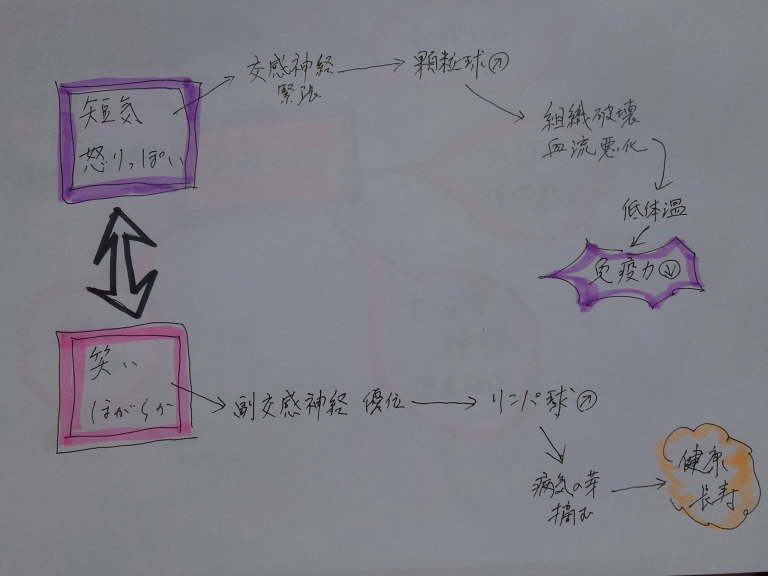 短気
怒りっぽい
交感神経
緊張
顆粒球↗
組織破壊
血流悪化
低体温
免疫力↓
笑い
ほがらか
副交感神経 優位
リンパ球↗
病気の芽
摘む
健康
長寿